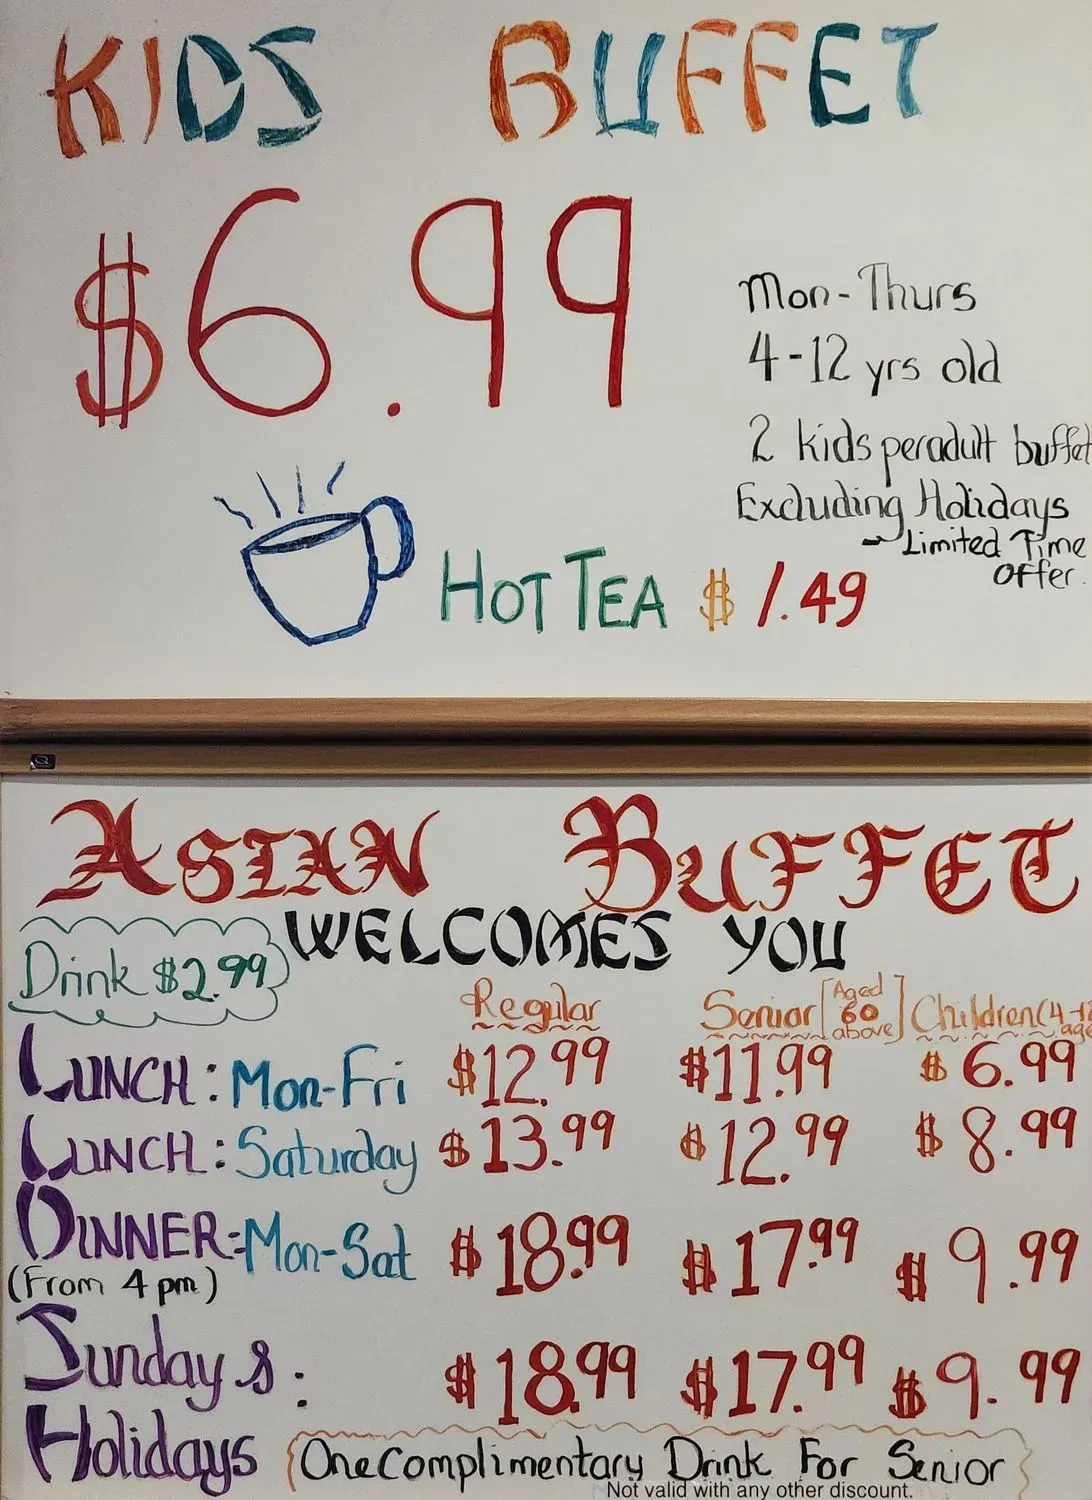 KIDS BUFFET
$6.99
Mon-Thurs
4-12 yrs old
2 kids per adult buffet
Excluding Holidays
- Limited Time
Offer.
HOT TEA $1.49
ASIAN BUFFET
WELCOMES YOU
Drink $2.99
Regular Senior [Aged 60 above] Children (4-12 age
LUNCH: Mon-Fri $12.99 $11.99 $6.99
LUNCH: Saturday $13.99 $12.99 $8.99
DINNER: Mon-Sat $18.99 $17.99 $9.99
(From 4 pm)
Sunday &: $18.99 $17.99 $9.99
Holidays
One Complimentary Drink For Senior
Not valid with any other discount.